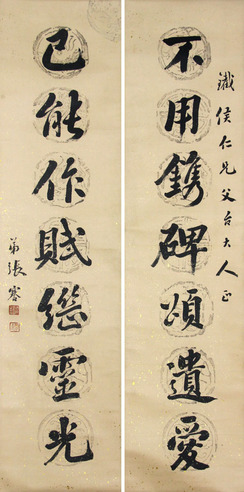 鐵侯仁兄父台大人正
不用鐫碑頌遺愛
已能作賦繼靈光
弟張謇